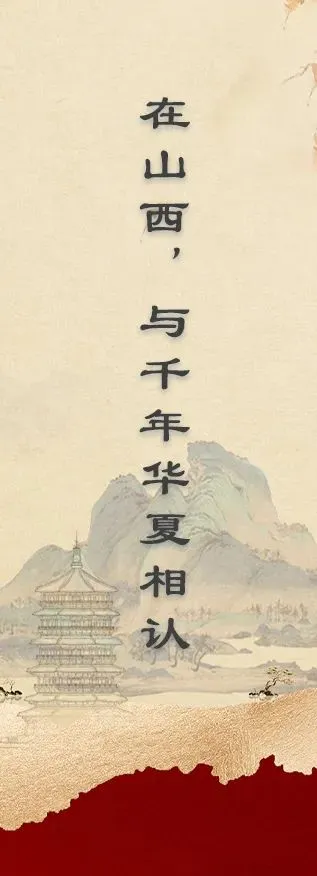 在山西，与千年华夏相认